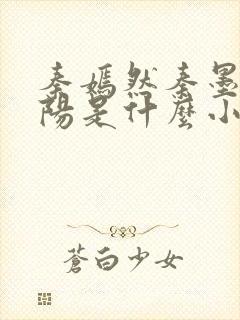 秦嫣然秦墨
陽是什麼小
蒼白少女